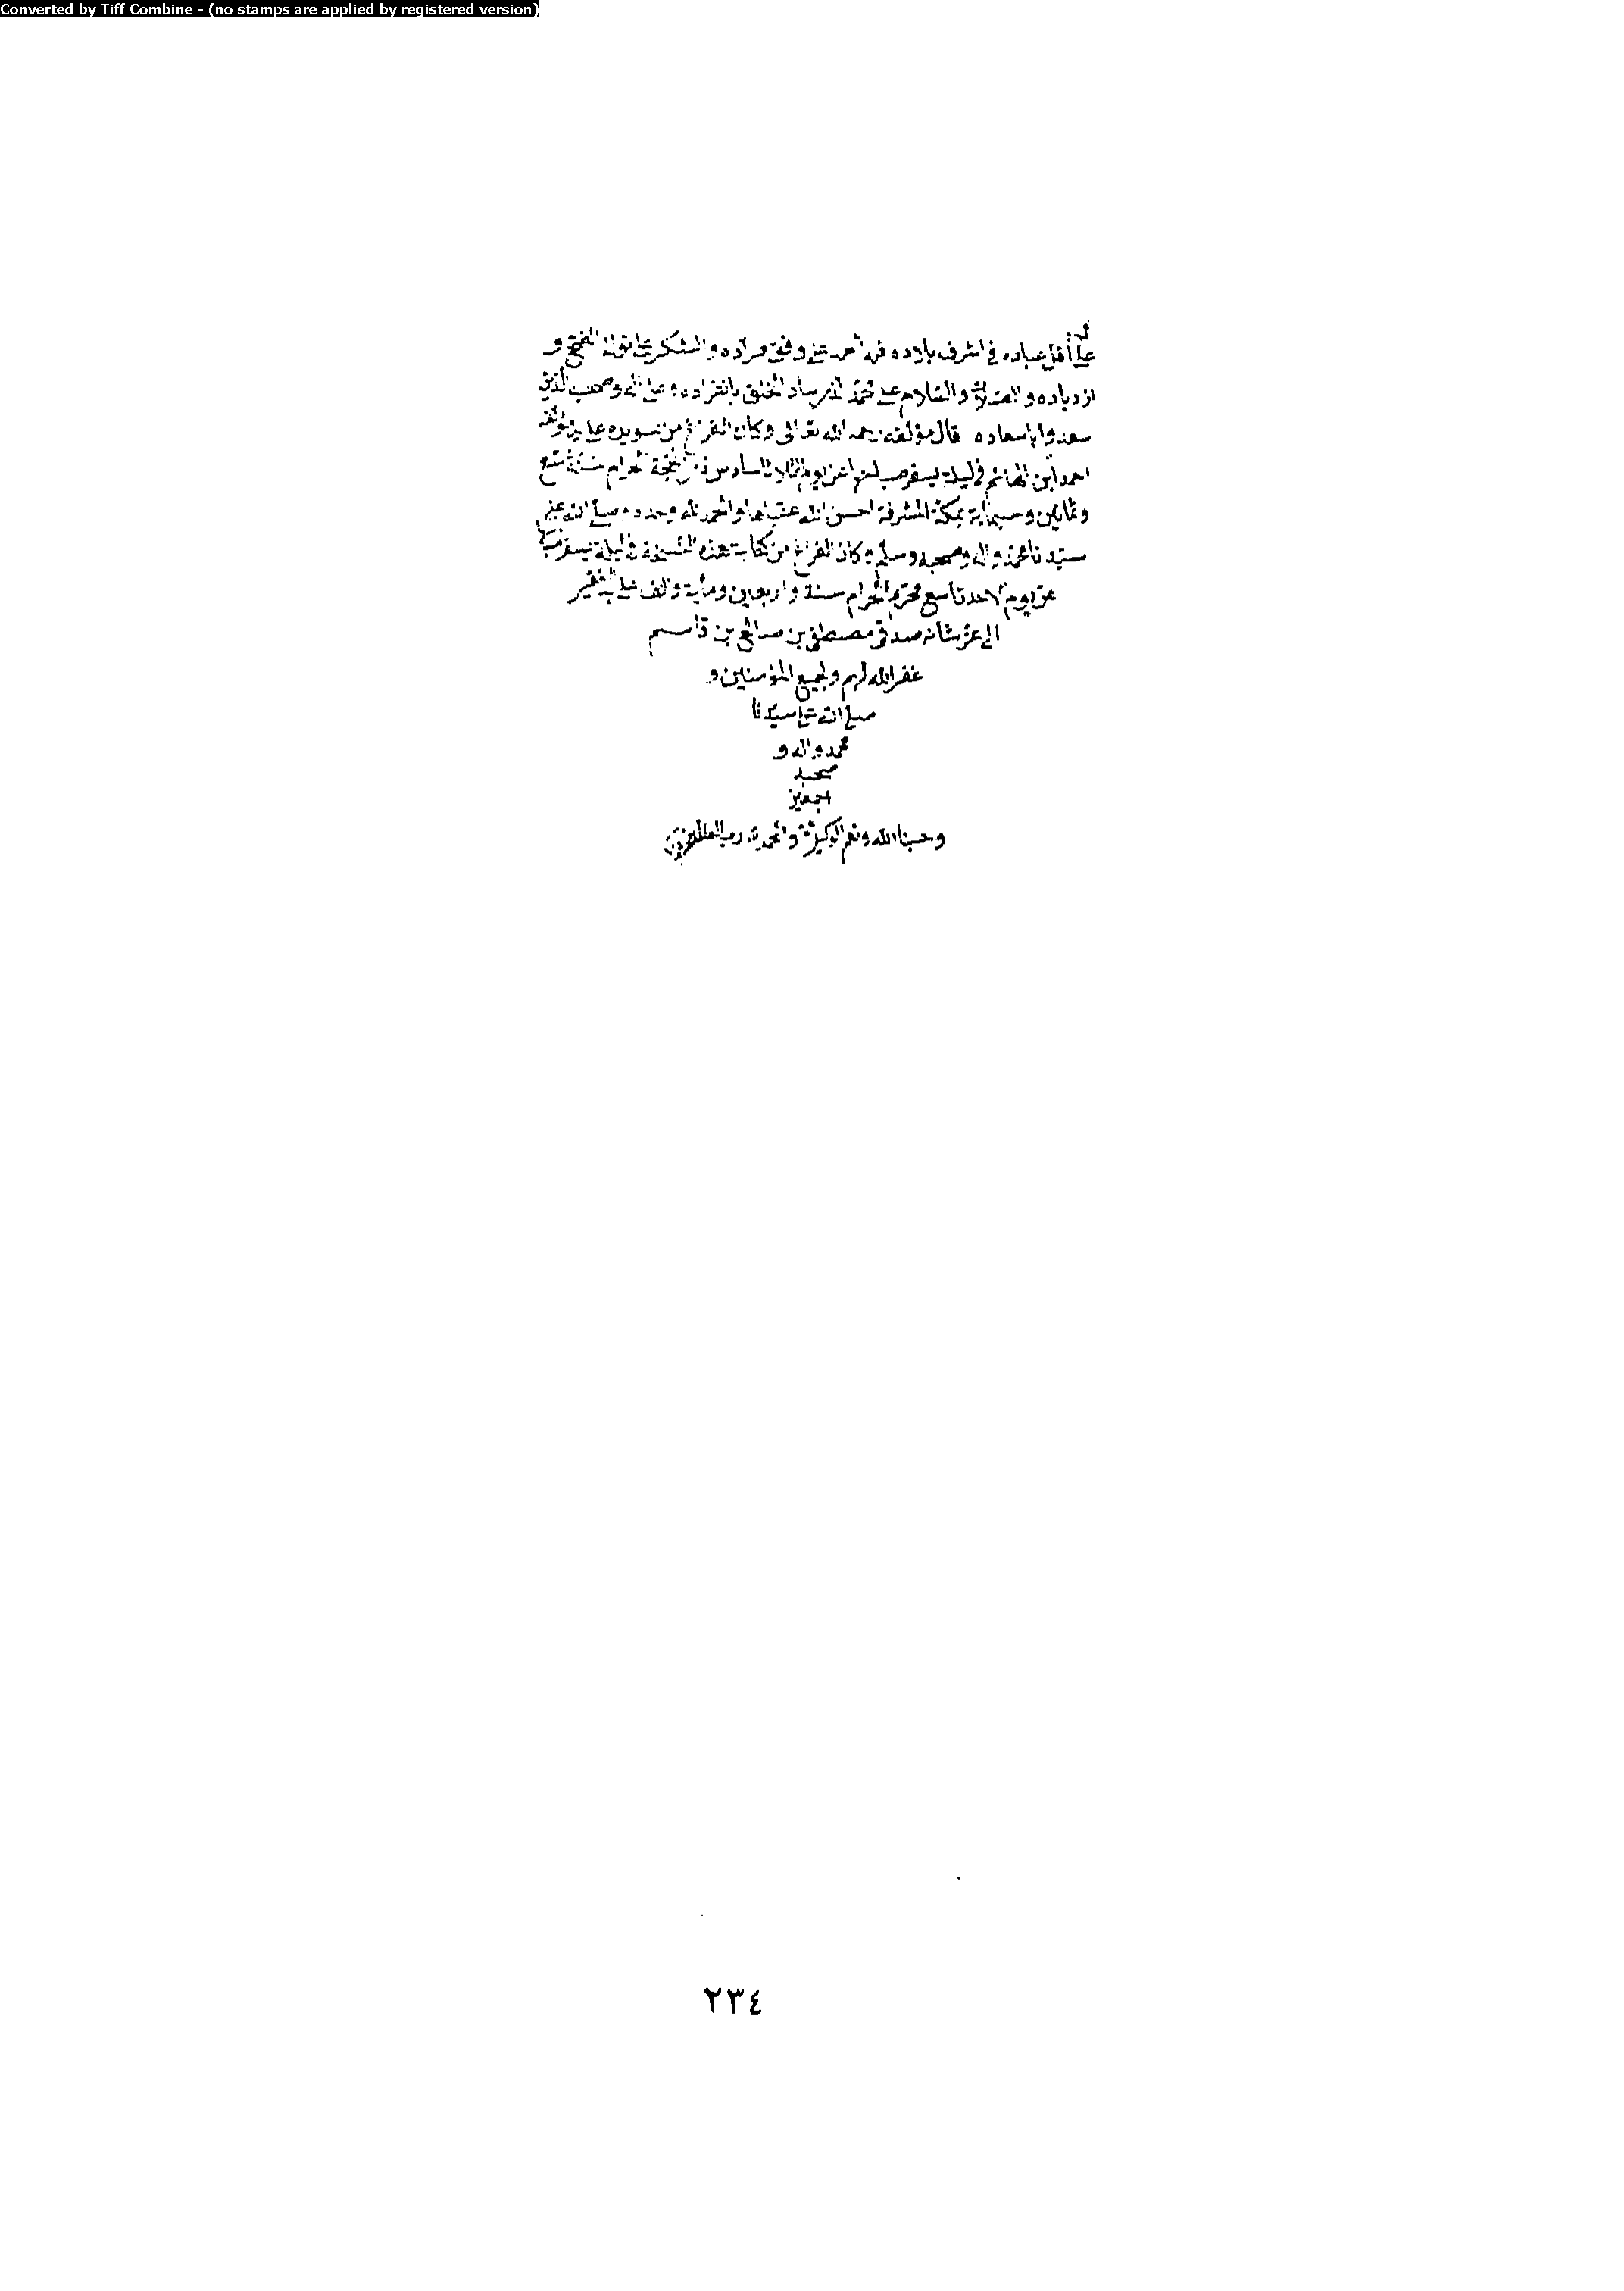 Converted by Tiff Combine - (no stamps are applied by registered version)
على أقل عباده في اشرف بلاده فله الحمد على وفق مراده والشكر على توالي الفتح و
ازدياده والصلاة والسلام على محمد الذي ساد الخلق بانفراده وعلى اله وصحبه الذين
سعدوا باسعاده قال مؤلفه رحمه الله تعالى وكان الفراغ من تسويده على يد مؤلفه
احمد ابن الهائم في ليلة يسفر صباحها عن يوم الثلاثا سادس ذي الحجة الحرام سنة تسع
وثمانين وسبعماية بمكة المشرفة احسن الله عقباها والحمد لله وحده وصلى الله على
سيدنا محمد واله وصحبه وسلم وكان الفراغ من كتابة هذه النسخة في ليلة يسفر
عن يوم الاحد تاسع محرم الحرام سنة واربعين وماية والف على يد الفقير
الى عز شانه صدقي مصطفى بن صالح بن قاسم
غفر الله لهم ولجميع المؤمنين و
صلى الله على سيدنا
محمد واله و
صحبه
اجمعين
وحسبنا الله ونعم الوكيل والحمد لله رب العالمين
٢٣٤